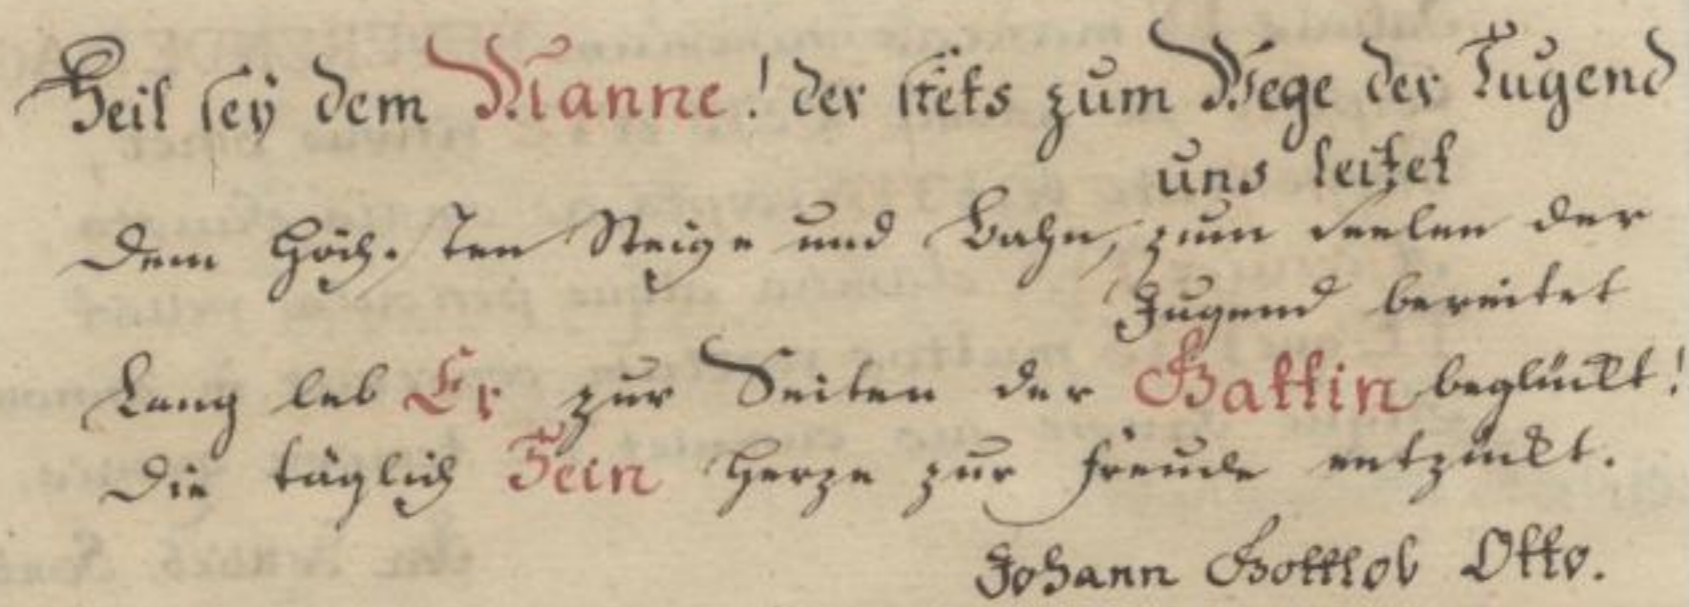 Heil seÿ dem Manne! der stets zum Wege der Tugend
uns leitet
Dem höch.sten Steige und Bahn, zum der
Jugend bereitet
Lang leb Er zur Seiten der Gattin beglückt!
Die täglich Sein Herze zur Freude entzückt.
Johann Gottlob Otto.